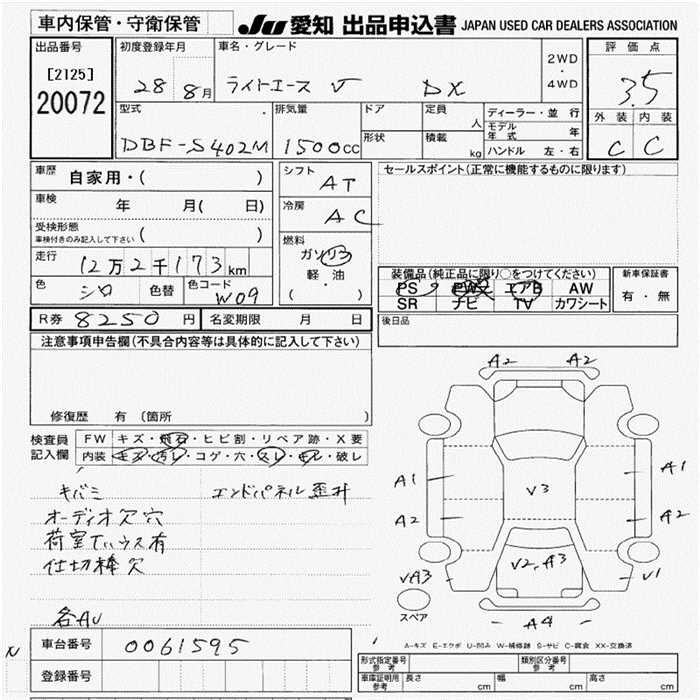 車内保管・守衛保管 JU 愛知 出品申込書 JAPAN USED CAR DEALERS ASSOCIATION
出品番号 初度登録年月 車名・グレード 2WD ・ 4WD 評価点
[2125] 28 8月 ライトエース DX 3.5
20072
型式 排気量 ドア 定員 人 ディーラー・並行 外装 内装
DBF-S402M 1500cc 形状 積載 kg モデル年式 年 C C
ハンドル 左・右
車歴 自家用・( ) シフト AT セールスポイント(正常に機能するものに限ります)
車検 年 月( 日) 冷房 AC
受検形態 車検付きのみ記入して下さい ( )
燃料 ガソリン 軽油 ( ・ )
走行 12万2千173km
装備品(純正品に限り○をつけてください) 新車保証書
色 シロ 色替 色コード W09
PS PW エアB AW 有・無
SR ナビ TV カワシート
R券 8250円 名変期限 月 日 後日品
注意事項申告欄(不具合内容等は具体的に記入して下さい)
修復歴 有 (箇所 )
検査員記入欄 FW キズ・飛石・ヒビ割・リペア跡・X要
内装 キズ・汚レ・コゲ・穴・スレ・キレ・破レ
キバミ エンドパネル歪
オーディオ欠 穴
荷室 有
仕切棒欠
各AU
A2 A2
A1 A1
V3
A2 A2
V2,A3
VA3 V1
スペア A4
A-キズ E-エクボ U-凹み W-補修跡 S-サビ C-腐食 XX-交換済
N 車台番号 0061595
登録番号
形式指定番号 参考 類別区分番号 参考
車庫証明用 参考 長さ cm 幅 cm 高さ cm